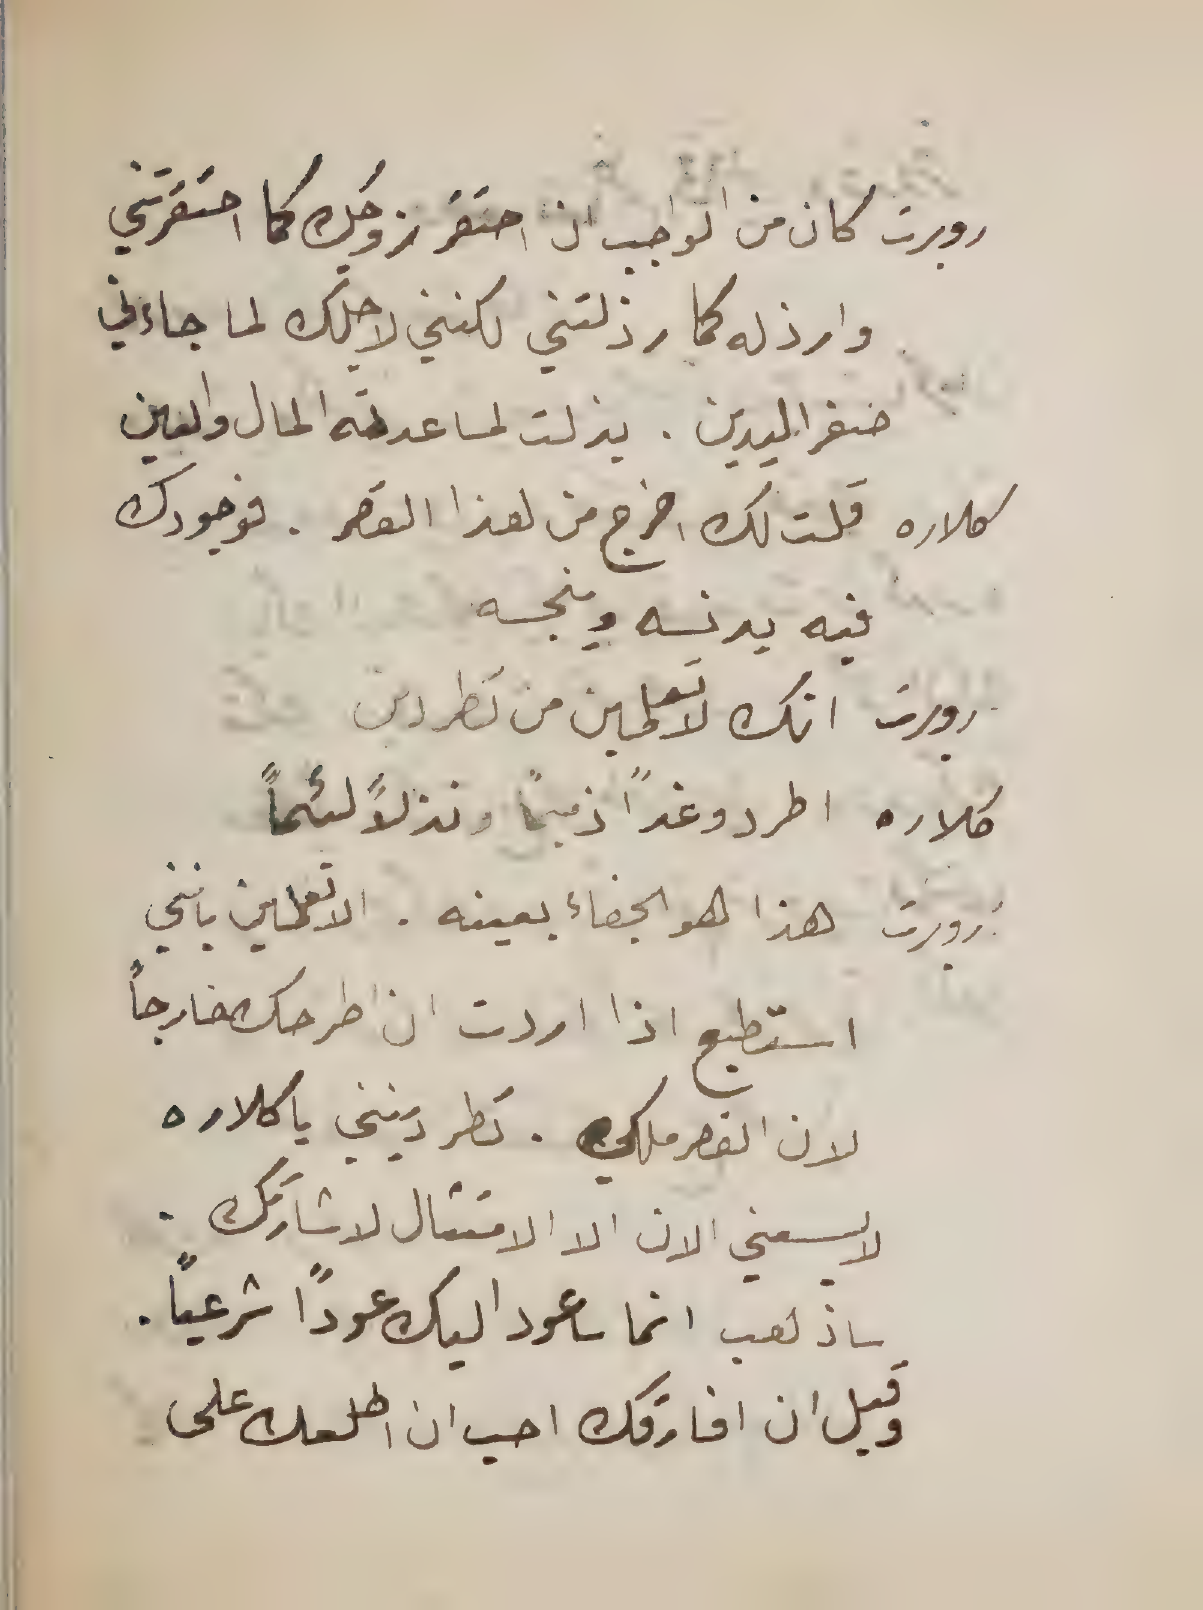 روبرت كان من الواجب ان احتقر زوجك كما احتقرتني
وارذله كما رذلتني لكنني لاجلك لما جاءني
صفر اليدين . بذلت لمساعدته المال والعين
كلاره قلت لك اخرج من هذا القصر . فوجودك
فيه يدنسه وينجسه
روبرت انك لا تعلمين من تطردين
كلاره اطرد وغداً ذميماً ونذلاً لئيماً
روبرت هذا هو الجفاء بعينه . الا تعلمين بانني
استطيع اذا اردت ان اطرحك خارجاً
لان القصر ملكي . تطردينني يا كلاره
لا يسعني الان الا الامتثال لاشارتك .
ساذهب انما ساعود اليك عوداً شرعياً .
وقبل ان افارقك احب ان اطلعك على